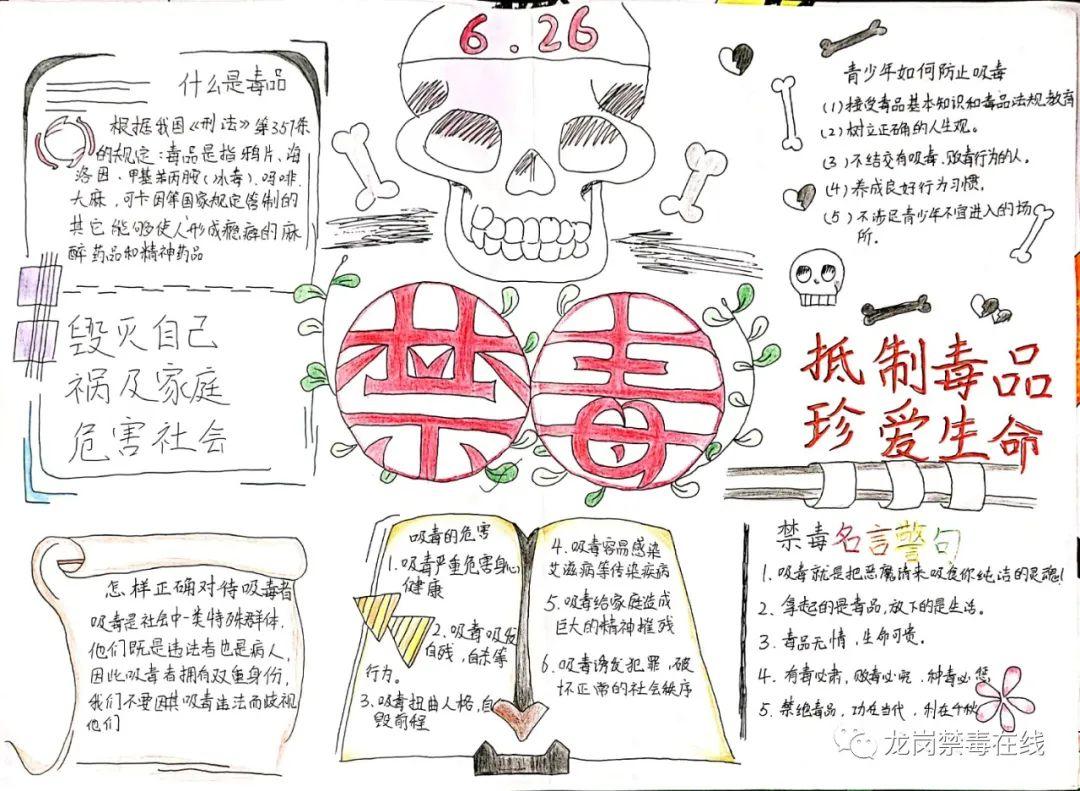 6.26
什么是毒品
根据我国《刑法》第357条
的规定：毒品是指鸦片、海
洛因、甲基苯丙胺(冰毒)、吗啡、
大麻，可卡因等国家规定管制的
其它能够使人形成瘾癖的麻
醉药品和精神药品
毁灭自己
祸及家庭
危害社会
禁毒
青少年如何防止吸毒
(1)接受毒品基本知识和毒品法规教育
(2)树立正确的人生观。
(3)不结交有吸毒、贩毒行为的人。
(4)养成良好行为习惯。
(5)不涉足青少年不宜进入的场
所。
抵制毒品
珍爱生命
怎样正确对待吸毒者
吸毒是社会中一类特殊群体，
他们既是违法者也是病人，
因此吸毒者拥有双重身份，
我们不要因其吸毒违法而歧视
他们
吸毒的危害
1.吸毒严重危害身心
健康
2.吸毒诱发
自残，自杀等
行为。
3.吸毒扭曲人格，自
毁前程
4.吸毒容易感染
艾滋病等传染疾病
5.吸毒给家庭造成
巨大的精神摧残
6.吸毒诱发犯罪，破
坏正常的社会秩序
禁毒名言警句
1.吸毒就是把恶魔请来吸食你纯洁的灵魂！
2.拿起的是毒品，放下的是生活。
3.毒品无情，生命可贵。
4.有毒必肃，贩毒必究，种毒必
5.禁绝毒品，功在当代，利在千秋
龙岗禁毒在线